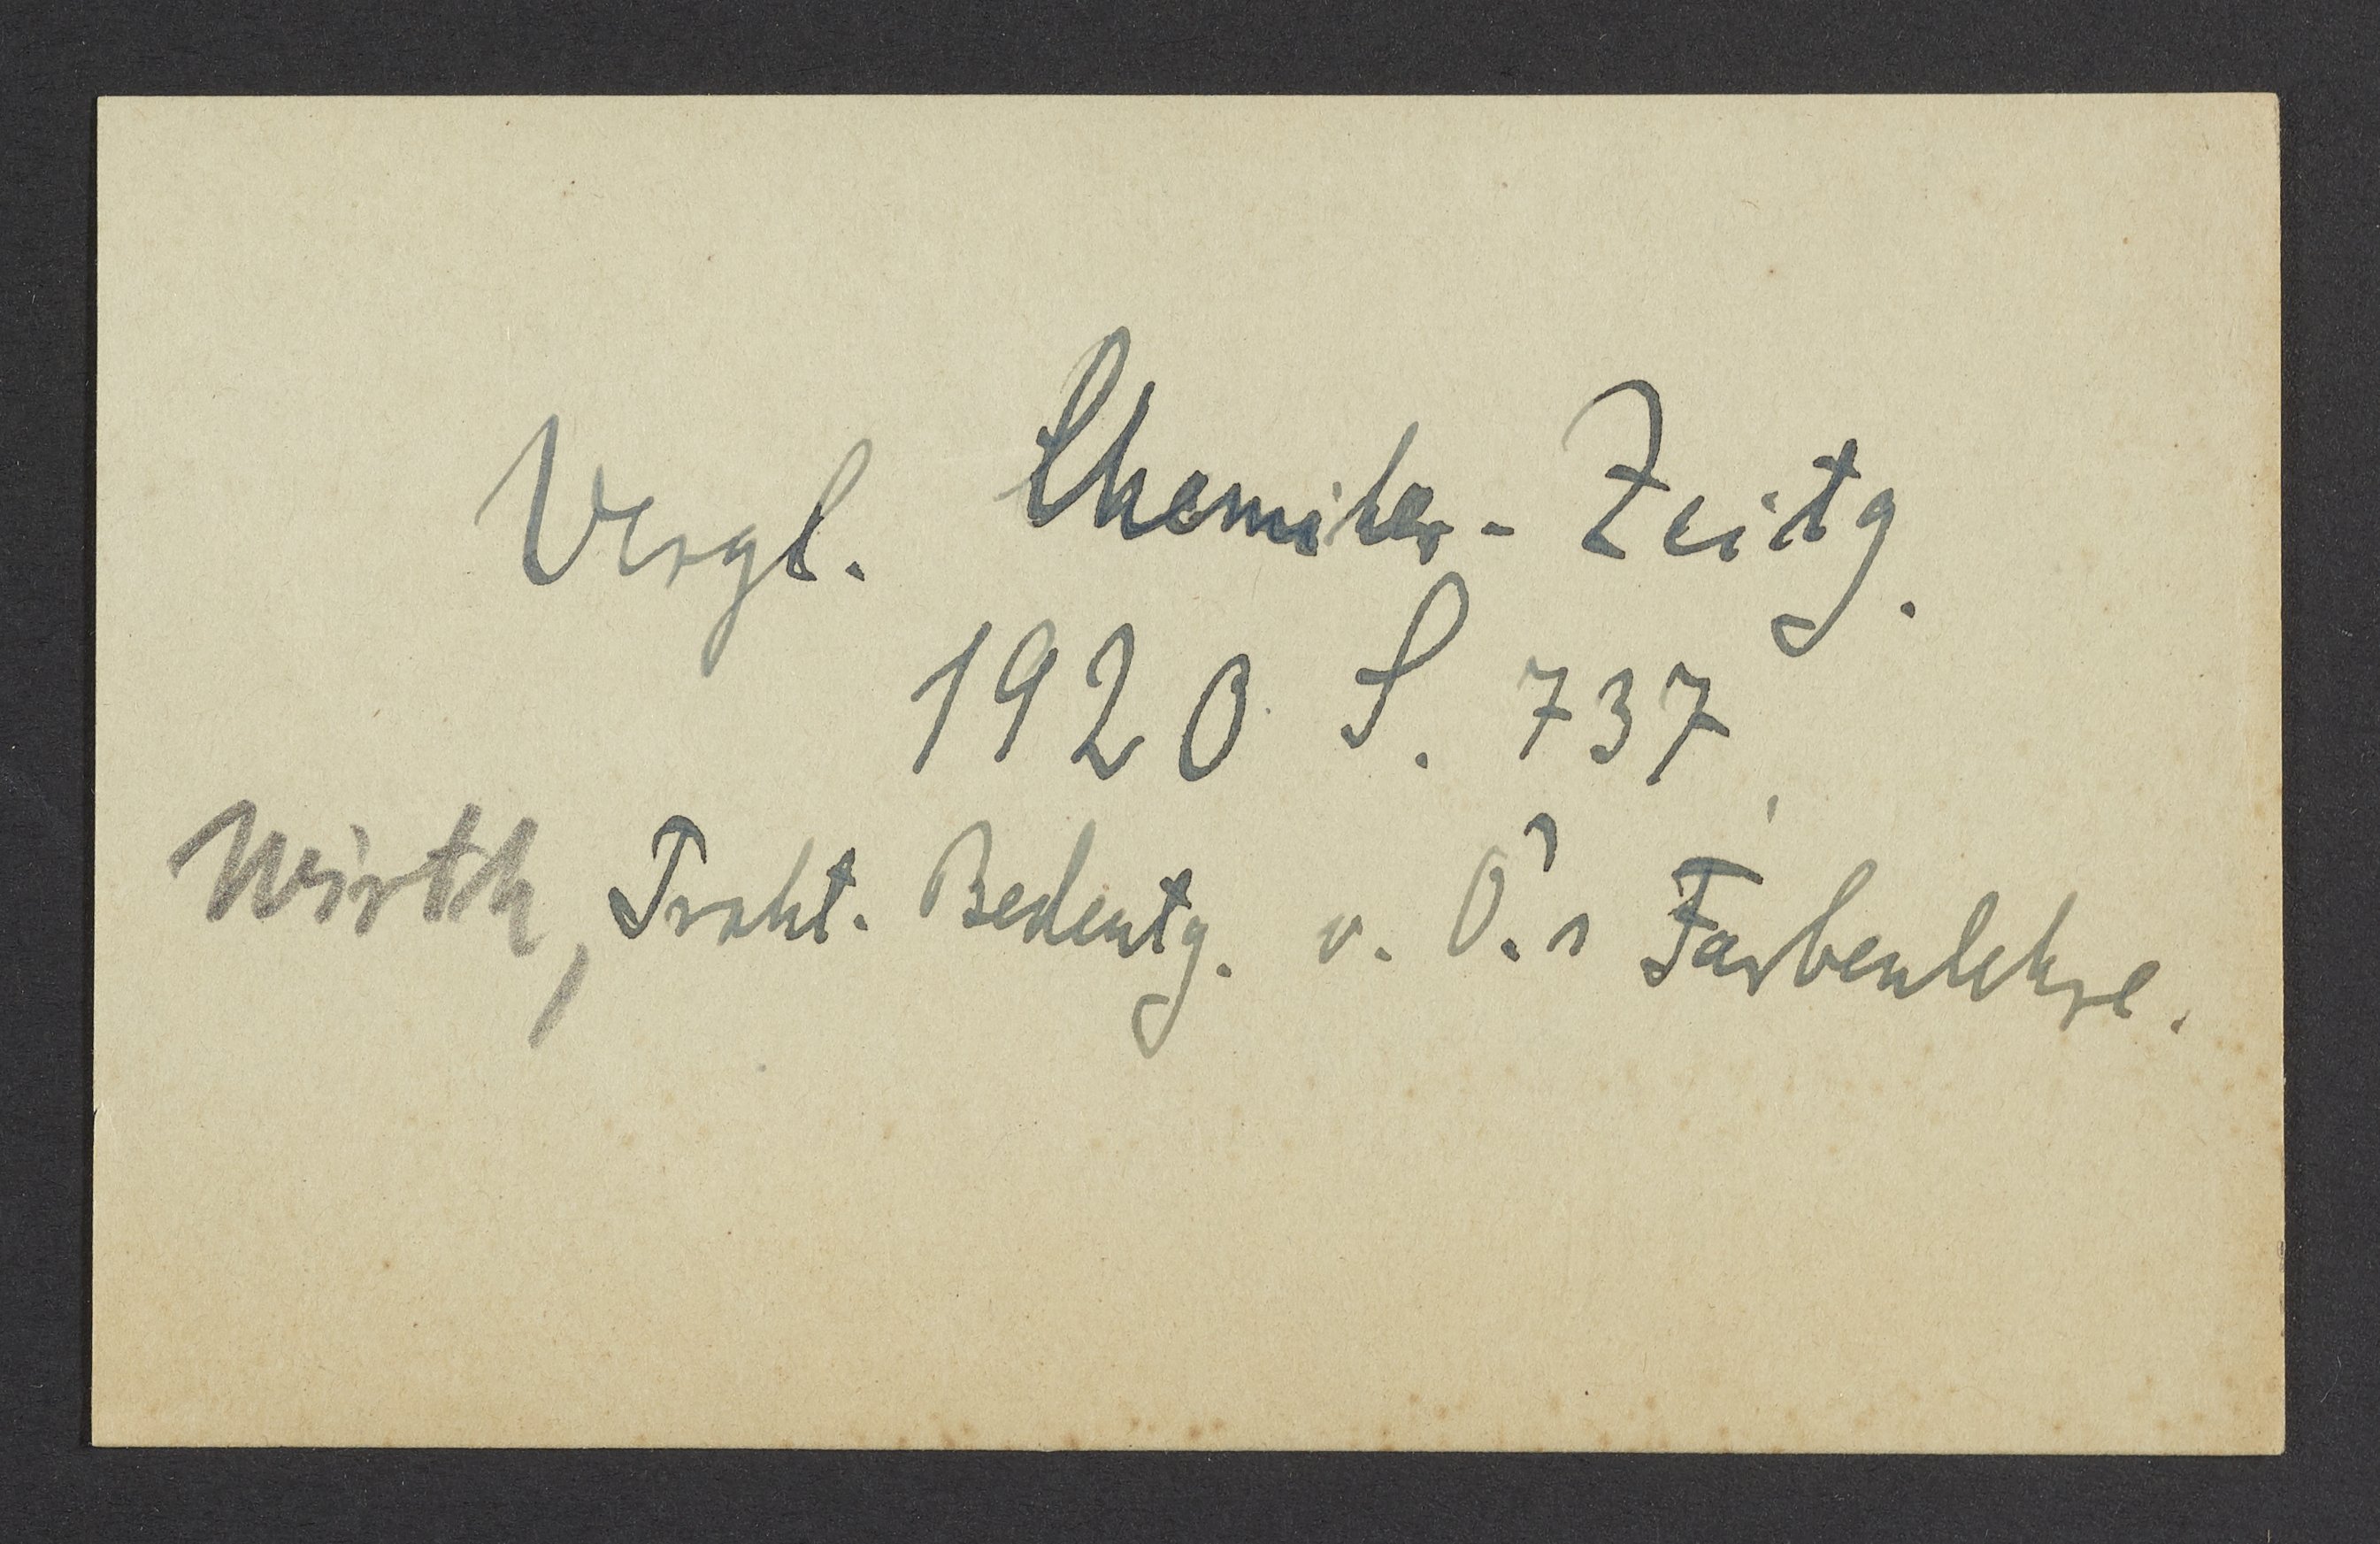 Vergl. Chemiker-Zeitg.
1920 S. 737
Wirth, Prakt. Bedeutg. v. O.'s Farbenlehre.